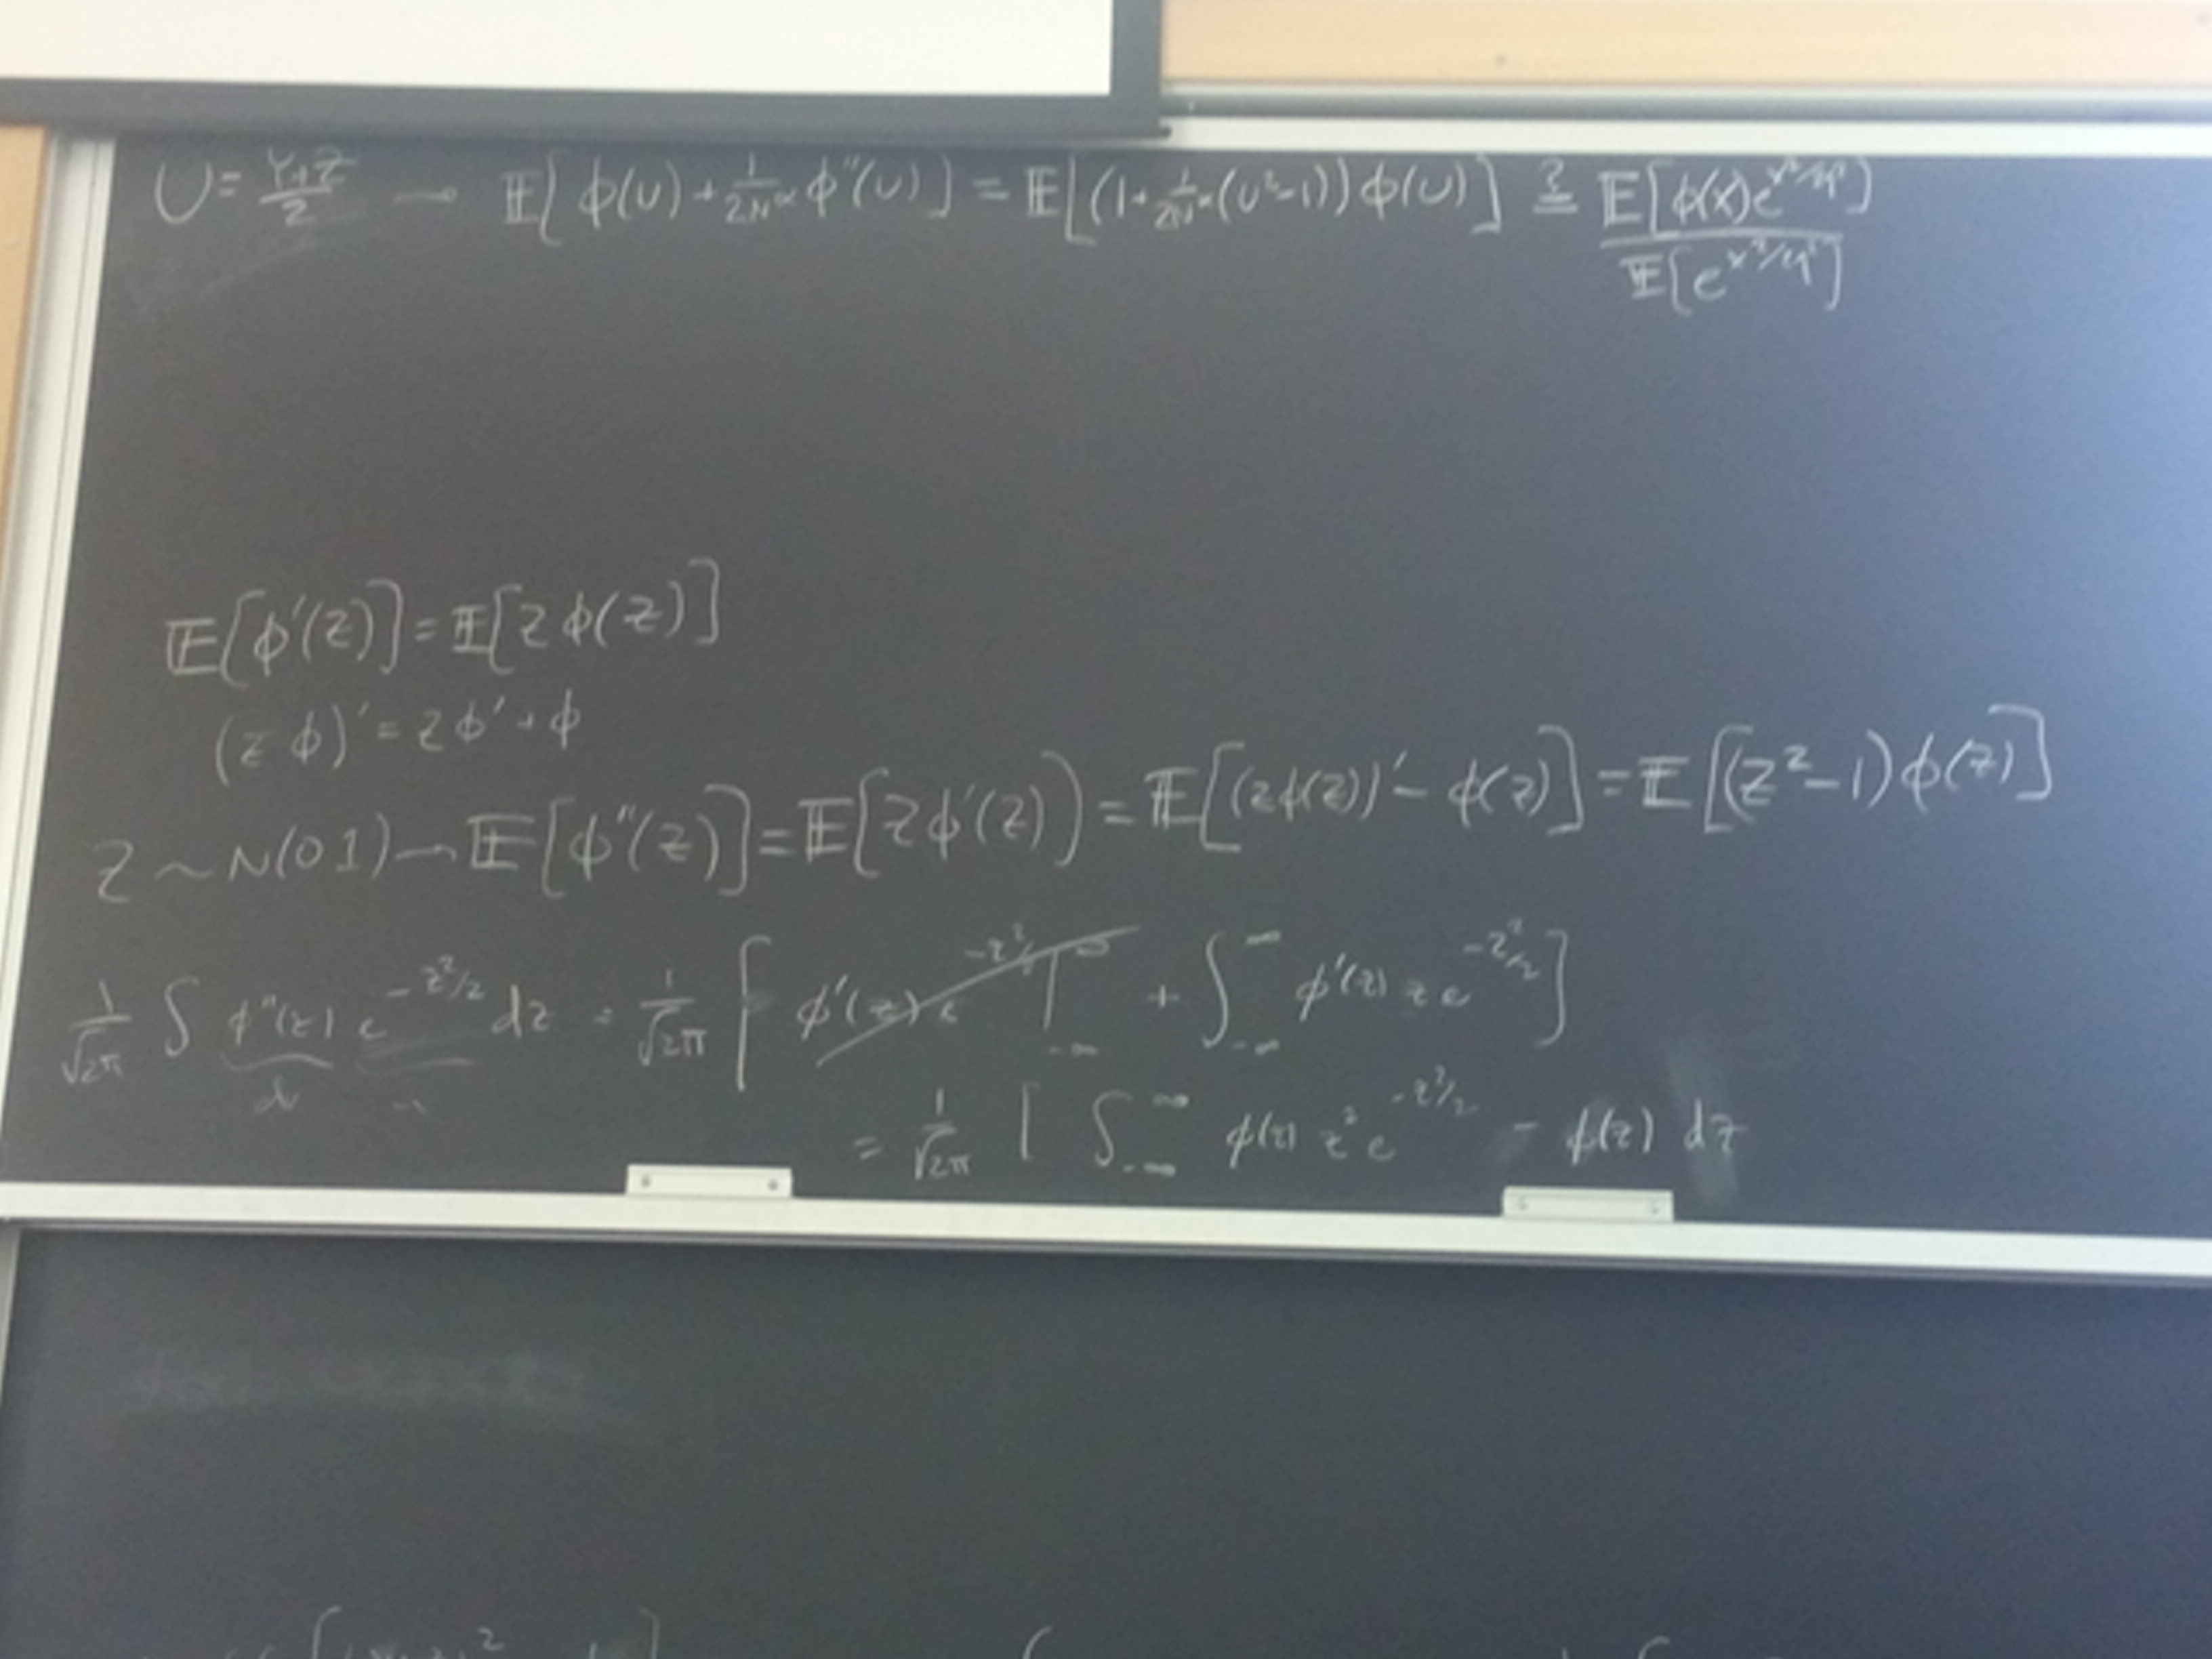 U = \frac{Y+Z}{2} → 𝔼[ϕ(U) + \frac{1}{2N^α} ϕ''(U)] = 𝔼[(1 + \frac{1}{2N^α}(U²-1))ϕ(U)] \overset{?}{=} \frac{𝔼[ϕ(X)e^{X²/4^2}]}{𝔼[e^{X²/4^2}]}
𝔼[ϕ'(Z)] = 𝔼[Zϕ(Z)]
(zϕ)' = zϕ' + ϕ
Z ~ N(0 1) → 𝔼[ϕ''(Z)] = 𝔼[Zϕ'(Z)) = 𝔼[(zϕ(z))' - ϕ(z)] = 𝔼[(Z²-1)ϕ(Z)]
\frac{1}{\sqrt{2π}} ∫ ϕ''(z) e^{-z²/2} dz = \frac{1}{\sqrt{2π}} [ϕ'(z) e^{-z²/2} |_{-∞}^{∞} + ∫_{-∞}^{∞} ϕ'(z) z e^{-z²/2}]
dv u
= \frac{1}{\sqrt{2π}} [ ∫_{-∞}^{∞} ϕ(z) z² e^{-z²/2} - ϕ(z) dz